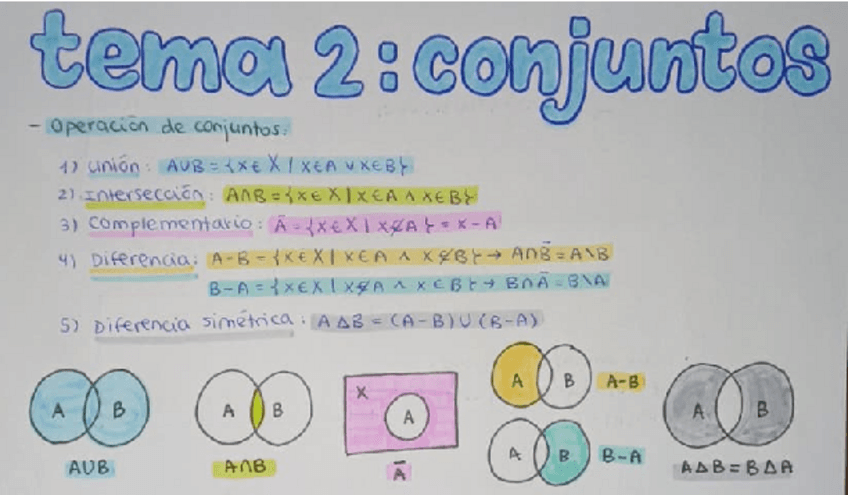 tema 2: conjuntos
- Operación de conjuntos:
1) Unión: A∪B = {x∈X | x∈A ∨ x∈B}
2) Intersección: A∩B = {x∈X | x∈A ∧ x∈B}
3) Complementario: Ā = {x∈X | x∉A} = X - A
4) Diferencia: A-B = {x∈X | x∈A ∧ x∉B} → A∩B̄ = A\B
B-A = {x∈X | x∉A ∧ x∈B} → B∩Ā = B\A
5) Diferencia simétrica: A∆B = (A-B)∪(B-A)
A B
A∪B
A B
A∩B
X
A
Ā
A B A-B
A B B-A
A B
A∆B = B∆A